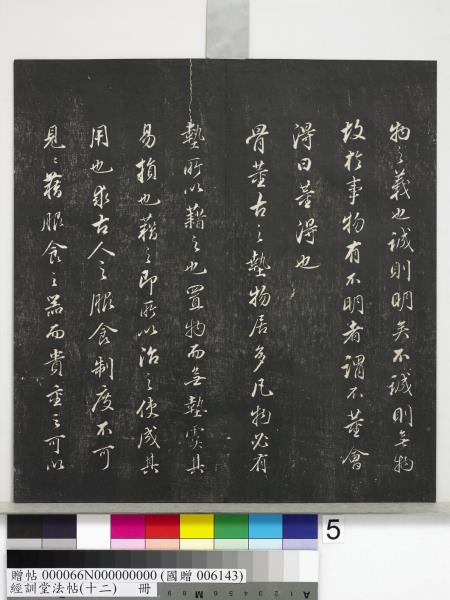 物之義也誠則明矣不誠則無物
故於事物有不明者謂不董會
得曰董得也
骨董古之墊物居多凡物必有
墊所以藉之也置物而無墊虞其
易損也藉之即所以治之使成其
用也求古人之服食制度不可
見〻藉服食之器而貴重之可以
5
贈帖 000066N000000000 (國贈 006143)
經訓堂法帖(十二) 冊